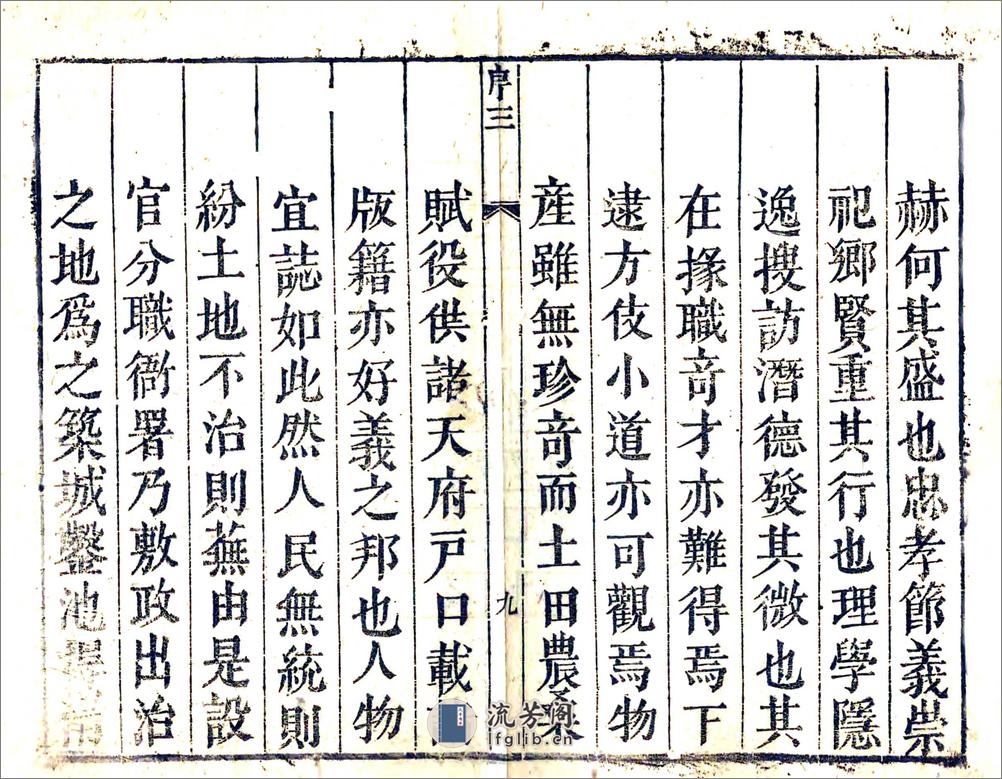 赫何其盛也忠孝節義崇
祀鄉賢重其行也理學隱
逸搜訪潛德發其微也其
在掾職奇才亦難得焉下
逮方伎小道亦可觀焉物
産雖無珍奇而土田農桑
序三
九
賦役供諸天府戸口載
版籍亦好義之邦也人物
宜誌如此然人民無統則
紛土地不治則蕪由是設
官分職衙署乃敷政出治
之地爲之築城鑿池
流芳阁
lfglib.cn